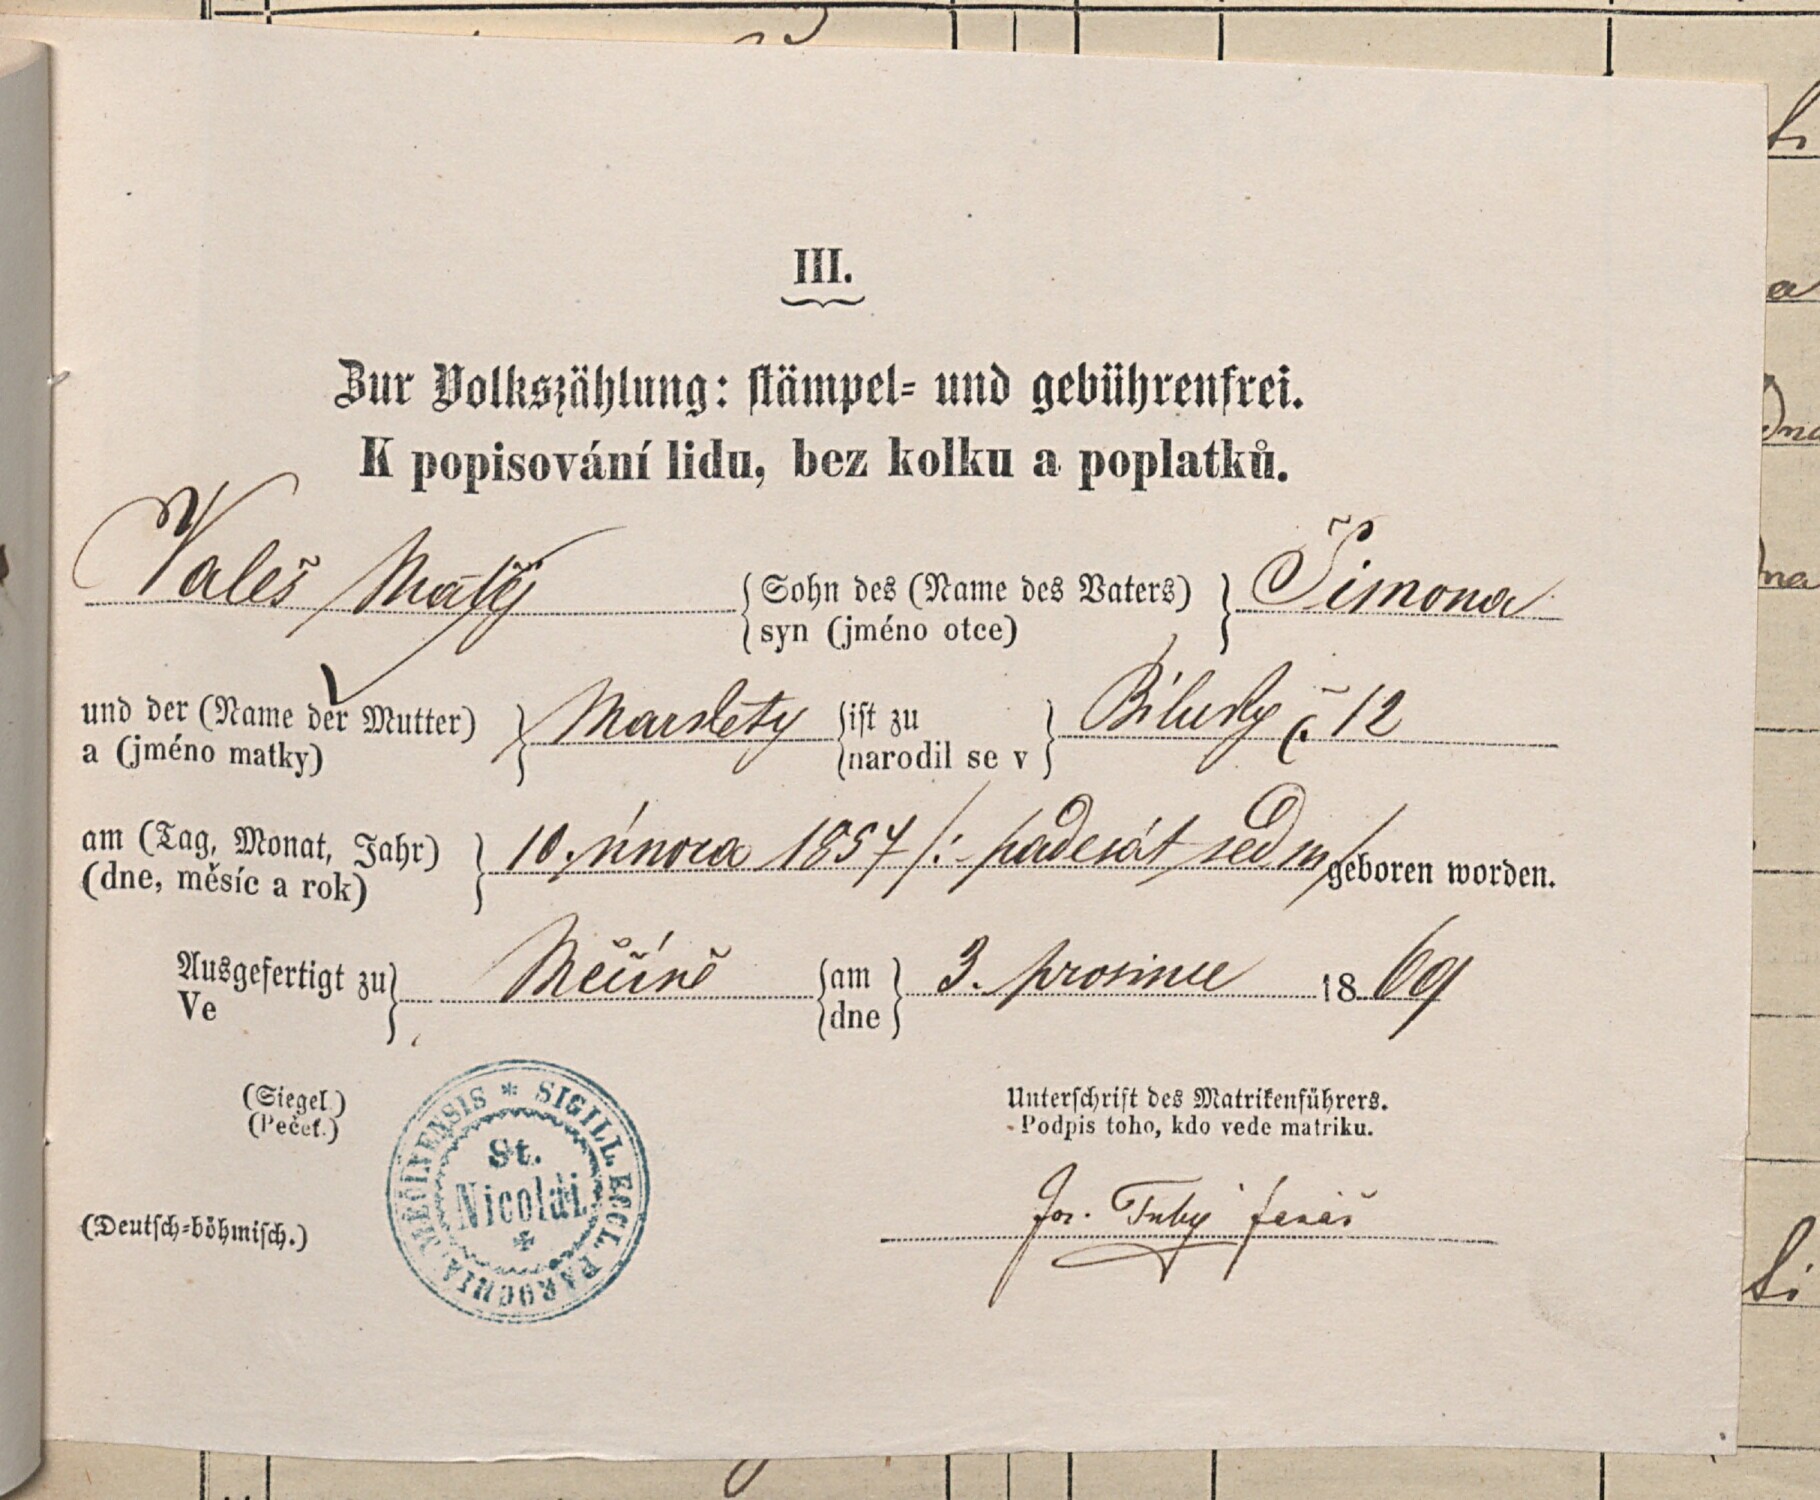 III.
Zur Volkszählung: stämpel- und gebührenfrei.
K popisování lidu, bez kolku a poplatků.
Valeš Matěj { Sohn des (Name des Vaters) } Šimona
syn (jméno otce)
und der (Name der Mutter) } Markety { ist zu } Biluky č 12
a (jméno matky) narodil se v
am (Tag, Monat, Jahr) } 10. února 1857 /: padesát sedm/ geboren worden.
(dne, měsíc a rok)
Ausgefertigt zu } Měčíně { am } 3. prosince 1869
Ve dne
(Siegel.)
(Pečeť.)
SIGILL. ECCL. PAROCHIA. MĚČINENSIS *
St.
Nicolai
Unterschrift des Matrikenführers.
Podpis toho, kdo vede matriku.
Jos. farář
(Deutsch-böhmisch.)